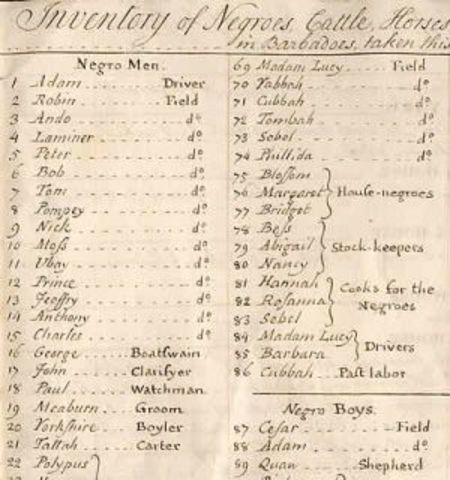 Inventory of Negroes, Cattle, Horses
in Barbadoes, taken this
Negro Men.
1 Adam Driver
2 Robin Field
3 Ando do
4 Laminer do
5 Peter do
6 Bob do
7 Tom do
8 Pompey do
9 Nick do
10 Moss do
11 Ubay do
12 Prince do
13 Jeoffry do
14 Anthony do
15 Charles do
16 George Boatswain
17 John Clarifyer
18 Paul Watchman
19 Meaburn Groom
20 Yorkshire Boyler
21 Tallah Carter
22 Polypus
69 Madam Lucy Field
70 Yabbah do
71 Cubbah do
72 Tombah do
73 Sebel do
74 Phillida do
75 Blossom
76 Margaret House-negroes
77 Bridget
78 Bess
79 Abigail Stock-keepers
80 Nancy
81 Hannah Cooks for the
82 Rosanna Negroes
83 Sebel
84 Madam Lucy Drivers
85 Barbara
86 Cubbah Past labor
Negro Boys.
87 Cesar Field
88 Adam do
89 Quan Shepherd